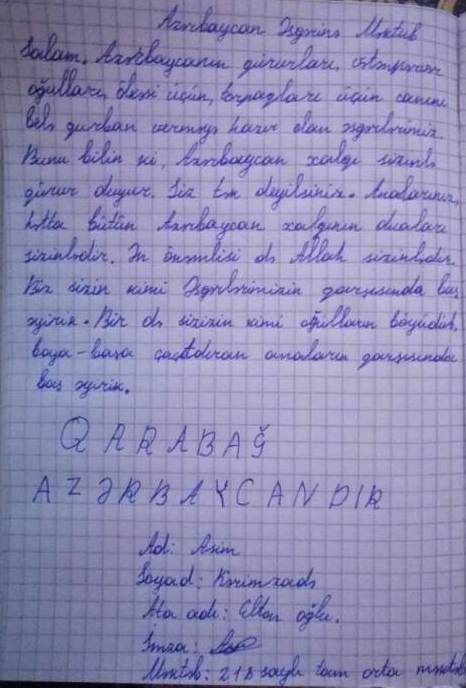 Azərbaycan Əsgərinə Məktub
Salam. Azərbaycanın qürurları, vətənpərvər
oğulları, ölkəsi üçün, torpaqları üçün canını
belə qurban verməyə hazır olan əsgərlərimiz.
Bunu bilin ki, Azərbaycan xalqı sizinlə
qürur duyur. Siz tək deyilsiniz. Analarınız,
hətta bütün Azərbaycan xalqının duaları
sizinlədir. Ən önəmlisi də Allah sizinlədir.
Biz sizin kimi Əsgərlərimizin qarşısında baş
əyirik. Bir də sizizin kimi oğulların böyüdüb,
boya-başa çatdıran anaların qarşısında
baş əyirik.
QARABAĞ
AZƏRBAYCANDIR
Ad: Asim
Soyad: Kərimzadə
Ata adı: Elton oğlu.
İmza:
Məktəb: 218 saylı tam orta məktəb